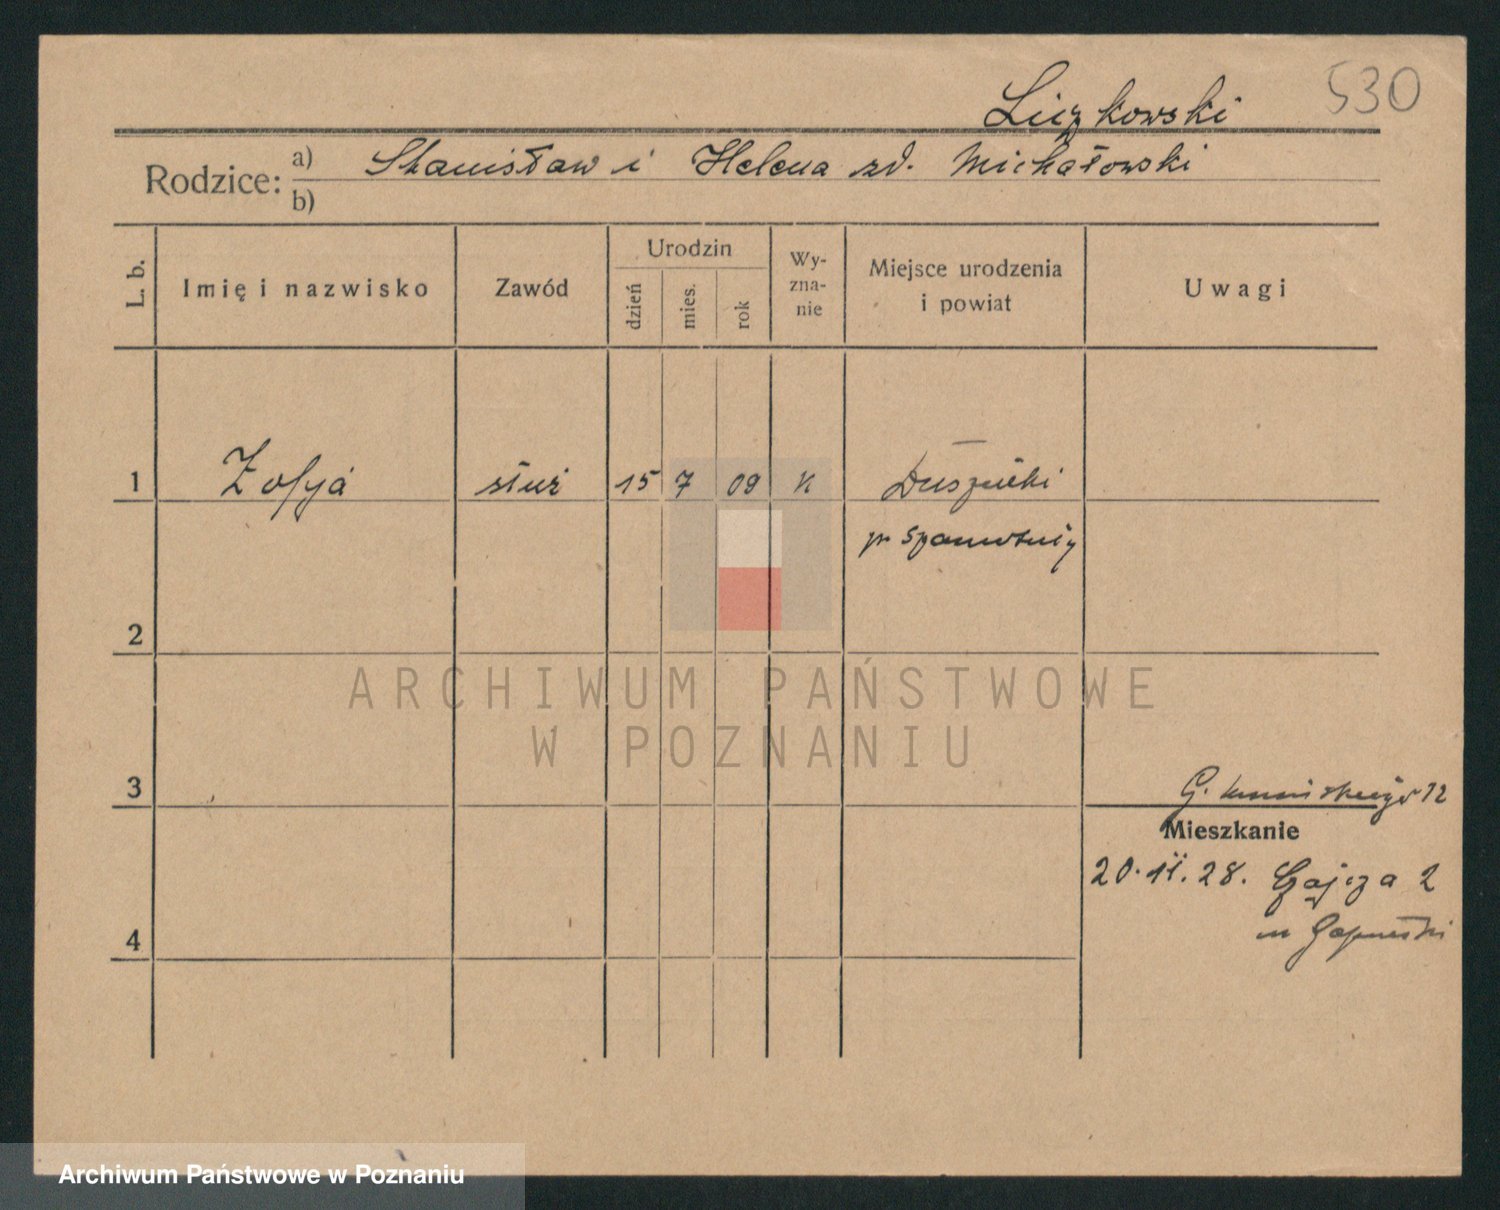 530
Liczkowski
Rodzice: a) Stanisław i Helena zd. Michałowski
b)
L. b.
Imię i nazwisko
Zawód
Urodzin
dzień
mies.
rok
Wy-
zna-
nie
Miejsce urodzenia
i powiat
Uwagi
1 Zofja służ 15 7 09 K Duszniki
p. Szamotuły
2
3
G. 12
Mieszkanie
20.11.28. 2
4
ARCHIWUM PAŃSTWOWE
W POZNANIU
Archiwum Państwowe w Poznaniu